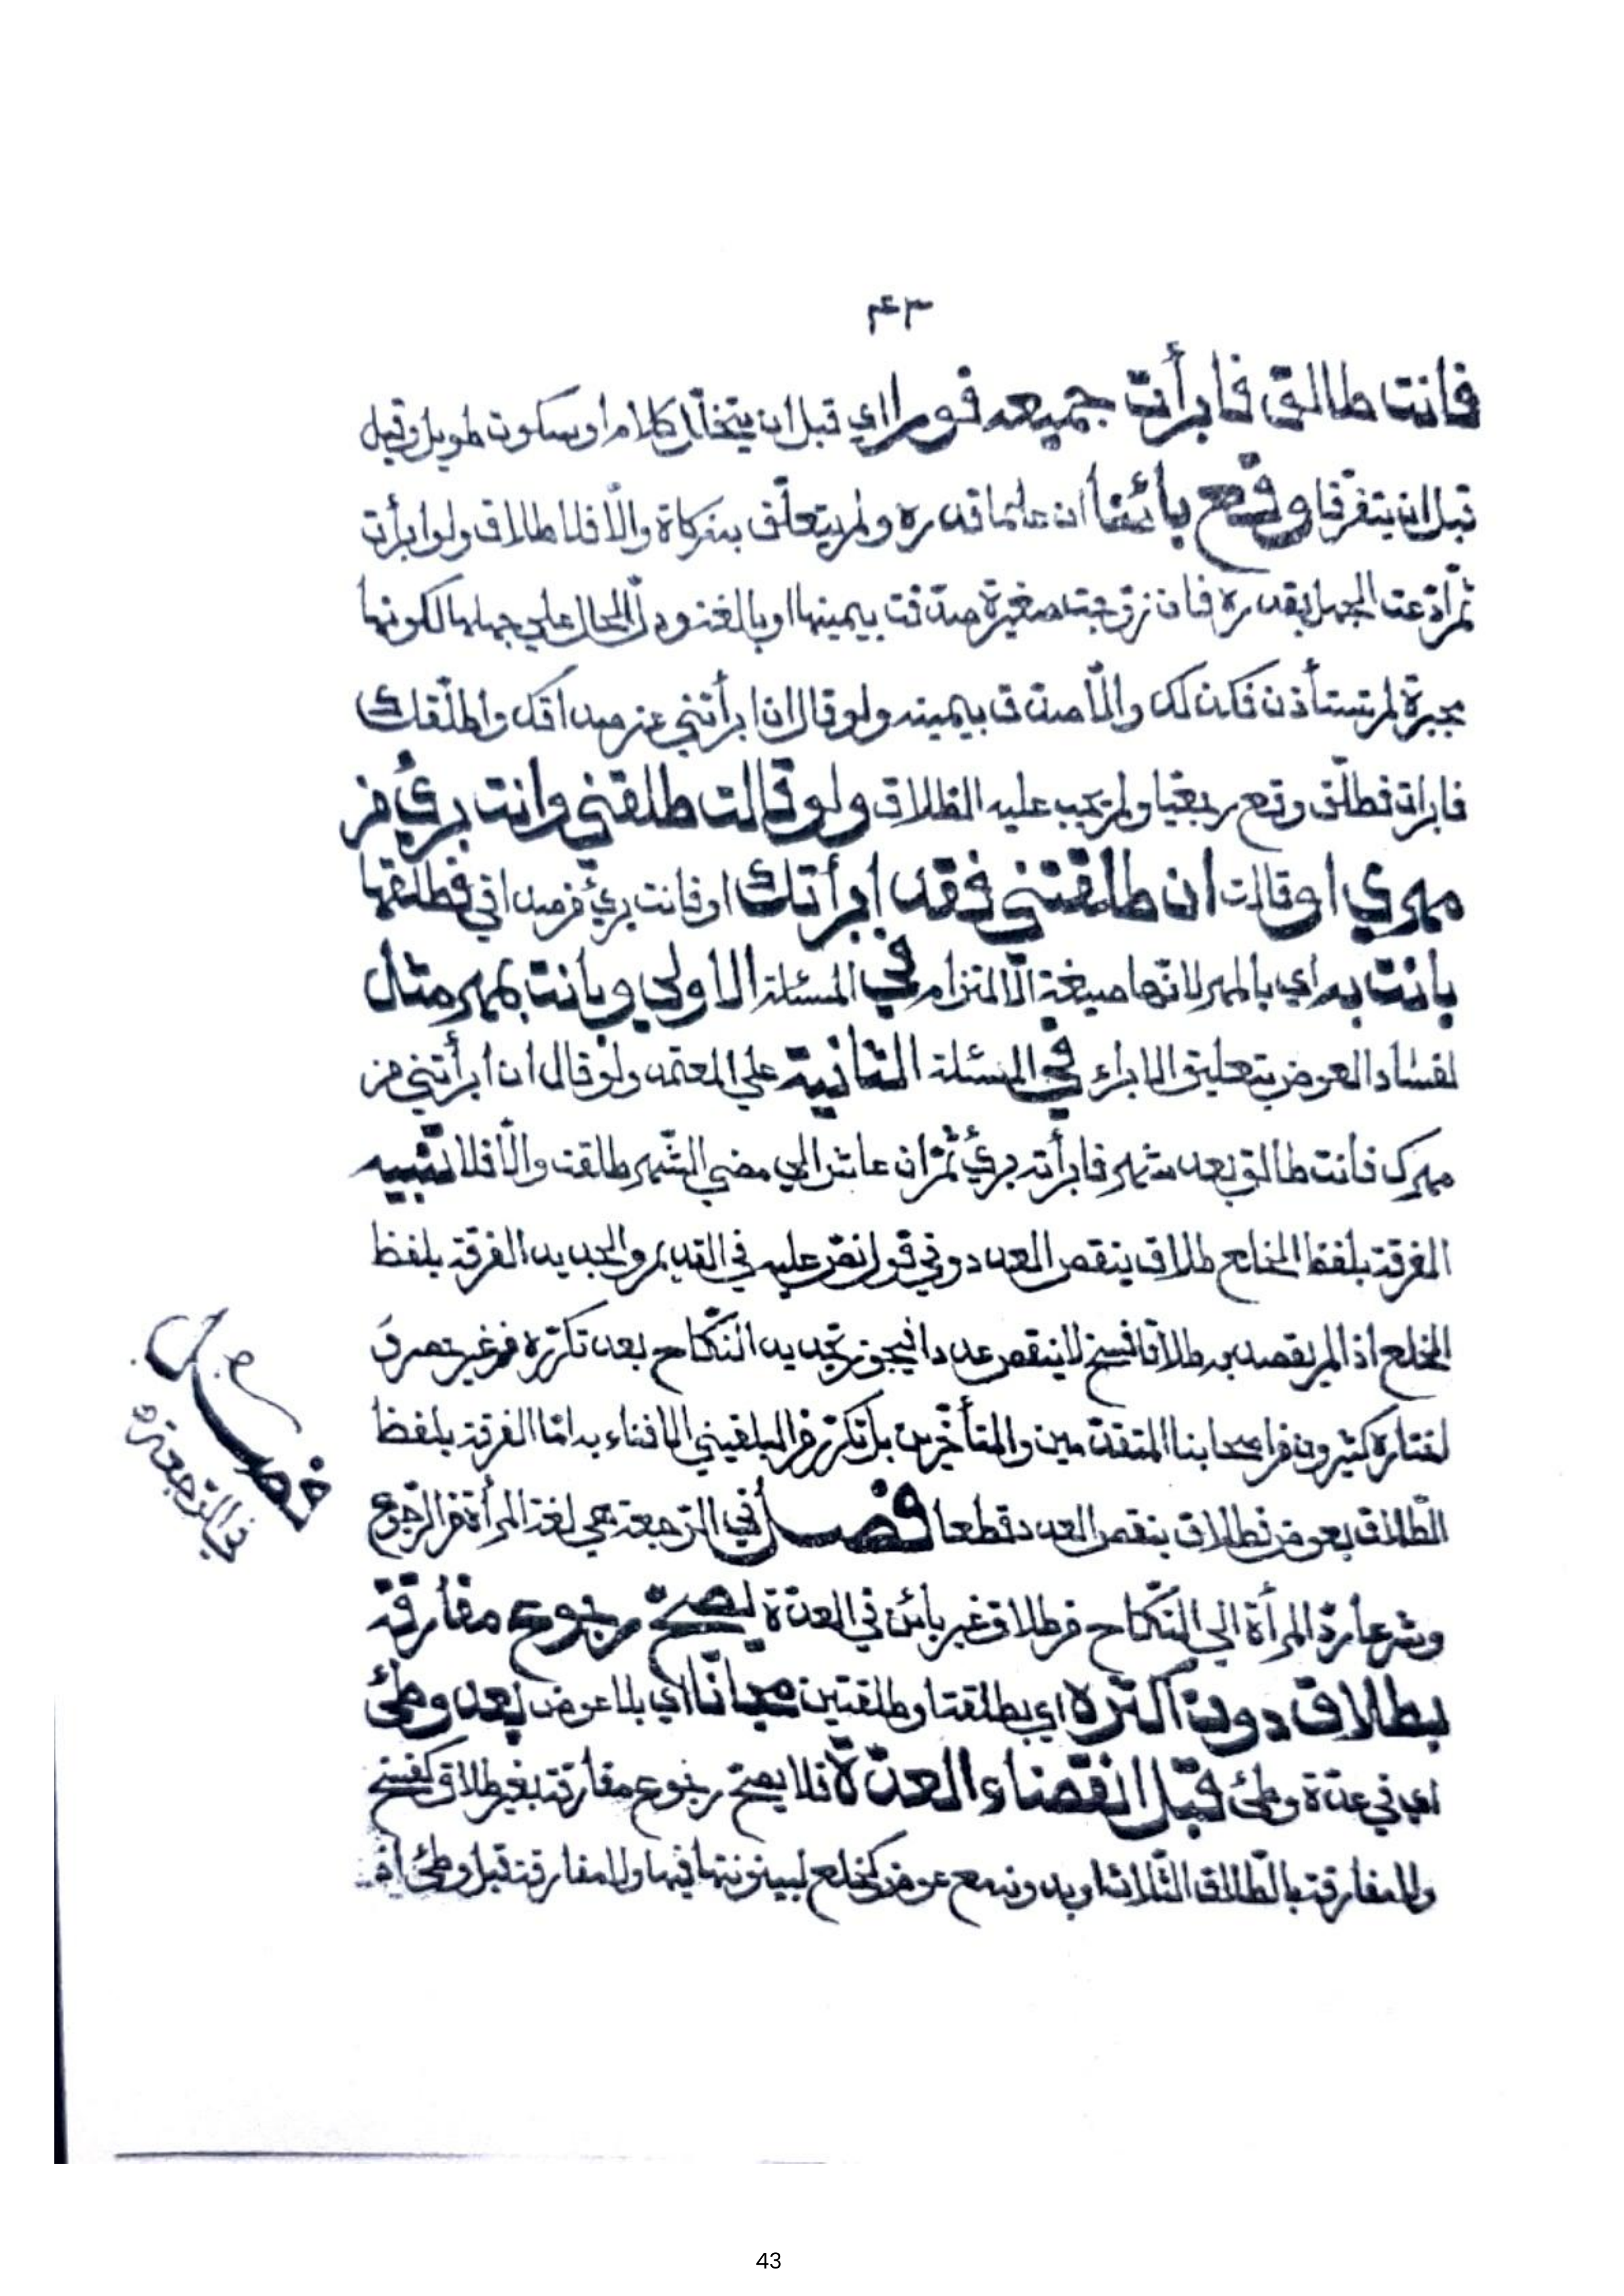 ٤٣
فانت طالق فابرأت جميعه فورا اي قبل ان يتخلّل كلام او سكوت طويل وقيل
قبل ان يتفرّقا وقع بائنا ان علما قدره ولم يتعلّق به زكاة والّا فلا طلاق ولو ابرأت
ثم ادّعت الجهل بقدره فان زوّجت صغيرة صدّقت بيمينها او بالغة ودلّ الحال على جهلها لكونها
مجبرة لم تستأذن فكذلك والّا صدّق بيمينه ولو قال ان ابرأتني من صداقك واطلّقك
فابرات فطلّق وقع رجعيا ولم يجب عليه الطلاق ولو قالت طلقني وانت برئ من
مهري او قالت ان طلقتني فقد ابرأتك او فانت برئ من صداقي فطلقها
بانت به اي بالمهر لانّها صيغة الالتزام في المسئلة الاولي وبانت بمهر مثل
لفساد العوض بتعليق الابراء في المسئلة الثانية علي المعتمد ولو قال ان ابرأتني من
مهرك فانت طالق بعد شهر فابرأته برئ ثمّ ان عاش الي مضي الشّهر طلقت والّا فلا تنبيه
الفرقة بلفظ الخلع طلاق ينقص العدد وفي قول نصّ عليه في القديم والجديد الفرقة بلفظ
الخلع اذا لم يقصد به طلاقا فسخ لا ينقص عددا فيجوز تجديد النّكاح بعد تكرّره من غير حصر و
اختاره كثيرون من اصحابنا المتقدّمين والمتأخّرين بل تكرّر من البلقيني الافتاء به امّا الفرقة بلفظ
الطّلاق بعوض فطلاق ينقص العدد قطعا فصل في الرّجعة هي لغة المرأة من الرّجوع
وشرعا ردّ المرأة الي النّكاح من طلاق غير بائن في العدّة يصحّ رجوع مفارقة
بطلاق دون اكثره اي بطلقة او طلقتين مجانا اي بلا عوض بعد وطئ
اي في عدّة وطئ قبل انقضاء العدّة فلا يصحّ رجوع مفارقة بغير طلاق كفسخ
ولا مفارقة بالطّلاق الثّلاث او بدونه مع عوض كخلع لبينونتها فيها ولا مفارقة قبل وطئ اذ
فصل
في الرّجعة
43